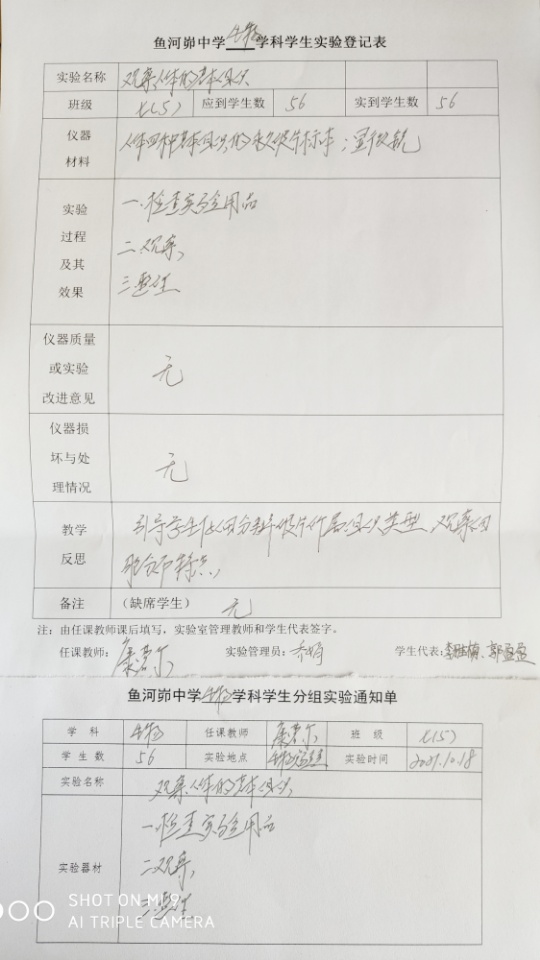 鱼河峁中学生物学科学生实验登记表
实验名称 观察人体的基本组织
班级 七(5) 应到学生数 56 实到学生数 56
仪器材料 人体四种基本组织的永久玻片标本;显微镜
实验过程及其效果 一.检查实验用品
二.观察
三.整理
仪器质量或实验改进意见 无
仪器损坏与处理情况 无
教学反思 引导学生 分辨玻片所属组织类型 观察细
胞分布特点
备注 (缺席学生) 无
注:由任课教师课后填写,实验室管理教师和学生代表签字。
任课教师: 实验管理员: 学生代表: 郭盈盈
鱼河峁中学生物学科学生分组实验通知单
学科 生物 任课教师 班级 七(5)
学生数 56 实验地点 生物实验室 实验时间 2021.10.18
实验名称 观察人体的基本组织
实验器材 一.检查实验用品
二.观察
三.整理
SHOT ON MI 9
AI TRIPLE CAMERA